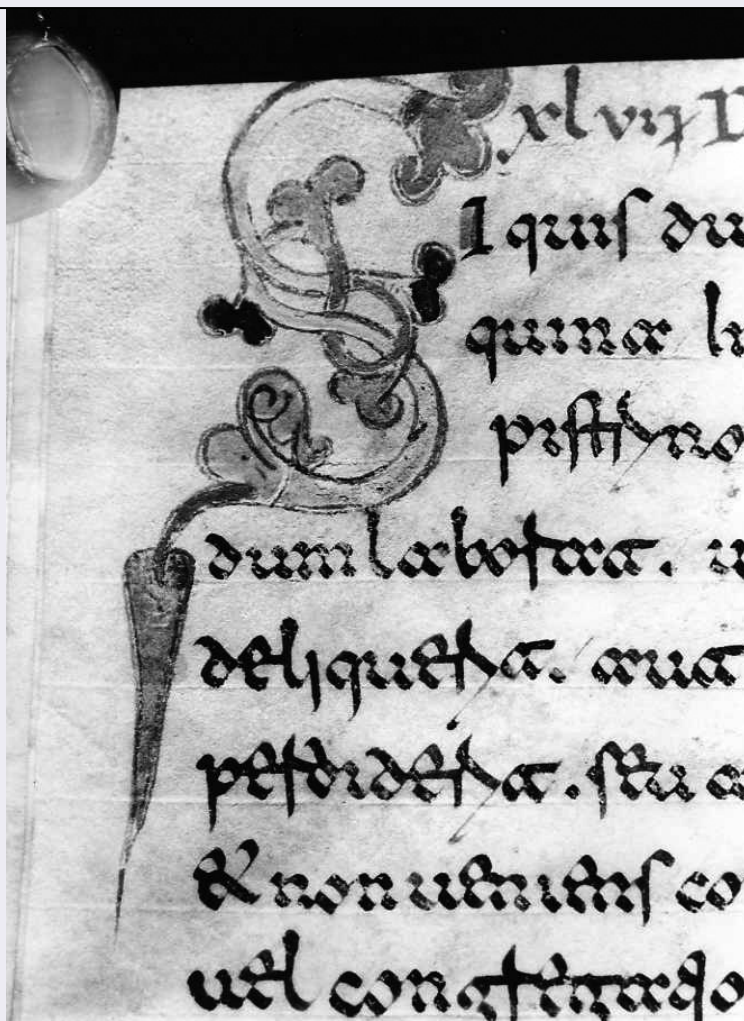 .xlvij
SI quis du
quina
pistrino
dum laborat. u
deliquerit. aut
perdiderit. seu a
& non ueniens co
uel congregatio